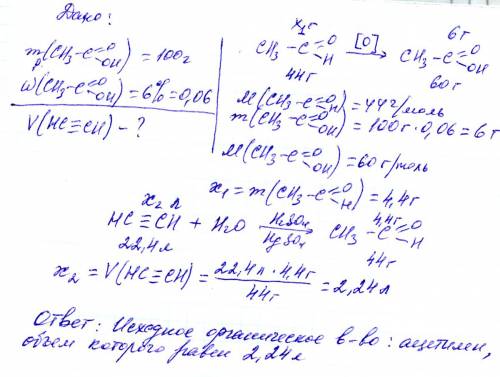 Дано:
m р (CH₃-C=O OH) = 100г
ω(CH₃-C=O OH) = 6% = 0,06
V(HC≡CH) - ?
x₁ г 6г
CH₃-C=O H [O]→ CH₃-C=O OH
44г 60г
M(CH₃-C=O H) = 44г/моль
m(CH₃-C=O OH) = 100г·0,06 = 6г
M(CH₃-C=O OH) = 60г/моль
x₁ = m(CH₃-C=O H) = 4,4г
x₂ л 4,4г
HC≡CH + H₂O H₂SO₄ HgSO₄→ CH₃-C=O H
22,4л 44г
x₂ = V(HC≡CH) = 22,4л·4,4г / 44г = 2,24л
Ответ: Исходное органическое в-во: ацетилен,
объем которого равен 2,24л